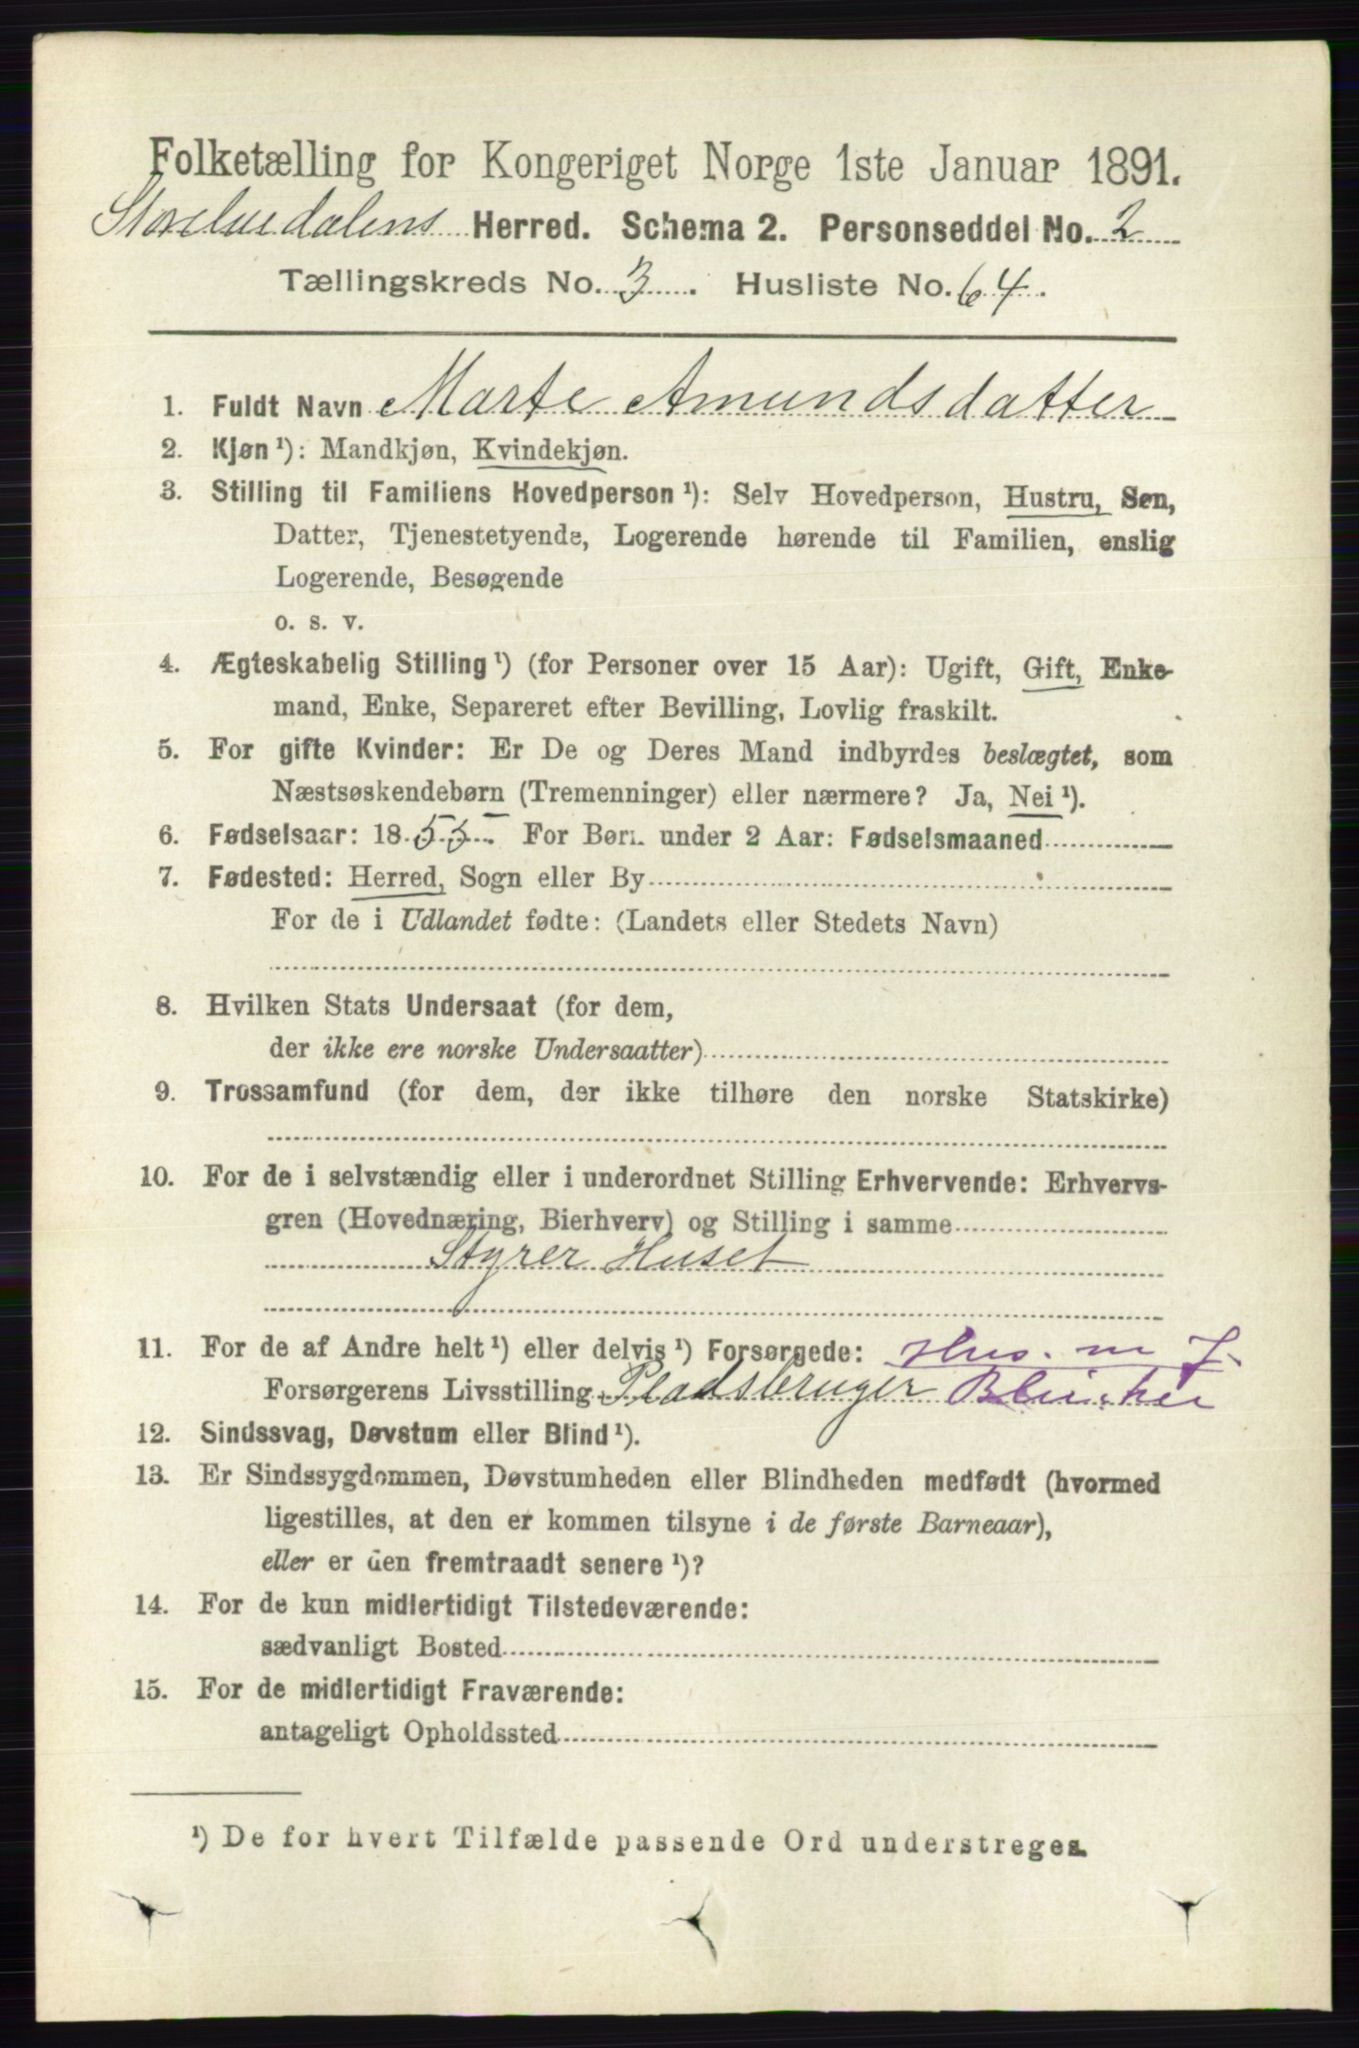 Folketælling for Kongeriget Norge 1ste Januar 1891.
Storelvedalens Herred. Schema 2. Personseddel No. 2
Tællingskreds No. 3. Husliste No. 64.
1. Fuldt Navn Marte Amundsdatter
2. Kjøn¹): Mandkjøn, Kvindekjøn.
3. Stilling til Familiens Hovedperson¹): Selv Hovedperson, Hustru, Søn,
Datter, Tjenestetyende, Logerende hørende til Familien, enslig
Logerende, Besøgende
o. s. v.
4. Ægteskabelig Stilling¹) (for Personer over 15 Aar): Ugift, Gift, Enke-
mand, Enke, Separeret efter Bevilling, Lovlig fraskilt.
5. For gifte Kvinder: Er De og Deres Mand indbyrdes beslægtet, som
Næstsøskendebørn (Tremenninger) eller nærmere? Ja, Nei¹).
6. Fødselsaar: 1855 For Børn under 2 Aar: Fødselsmaaned
7. Fødested: Herred, Sogn eller By
For de i Udlandet fødte: (Landets eller Stedets Navn)
8. Hvilken Stats Undersaat (for dem,
der ikke ere norske Undersaatter)
9. Trossamfund (for dem, der ikke tilhøre den norske Statskirke)
10. For de i selvstændig eller i underordnet Stilling Erhvervende: Erhvervs-
gren (Hovednæring, Bierhverv) og Stilling i samme
Styrer Huset
11. For de af Andre helt¹) eller delvis¹) Forsørgede: Hus. m J.
Forsørgerens Livsstilling Pladsbruger
12. Sindssvag, Døvstum eller Blind¹).
13. Er Sindssygdommen, Døvstumheden eller Blindheden medfødt (hvormed
ligestilles, at den er kommen tilsyne i de første Barneaar),
eller er den fremtraadt senere¹)?
14. For de kun midlertidigt Tilstedeværende:
sædvanligt Bosted
15. For de midlertidigt Fraværende:
antageligt Opholdssted
¹) De for hvert Tilfælde passende Ord understreges.